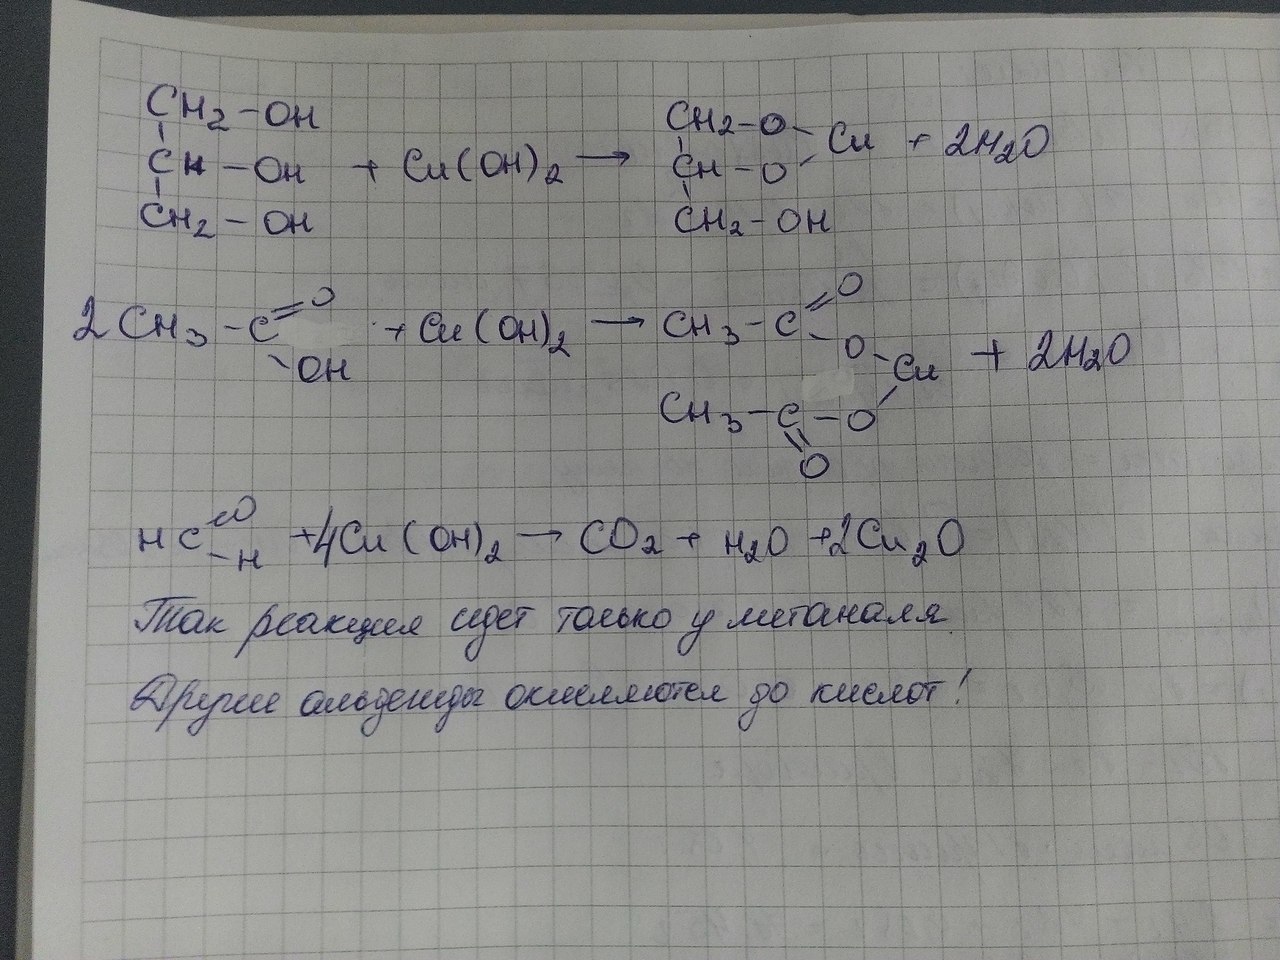 CH2-OH
CH-OH + Cu(OH)2 → CH2-O
CH-O Cu + 2H2O
CH2-OH
CH2-OH
2CH3-C=O
OH + Cu(OH)2 → CH3-C=O
O-Cu + 2H2O
CH3-C-O
O
HC=O
-H +4Cu(OH)2 → CO2 + H2O +2Cu2O
Так реакция идет только у метаналя
Другие альдегиды окисляются до кислот!